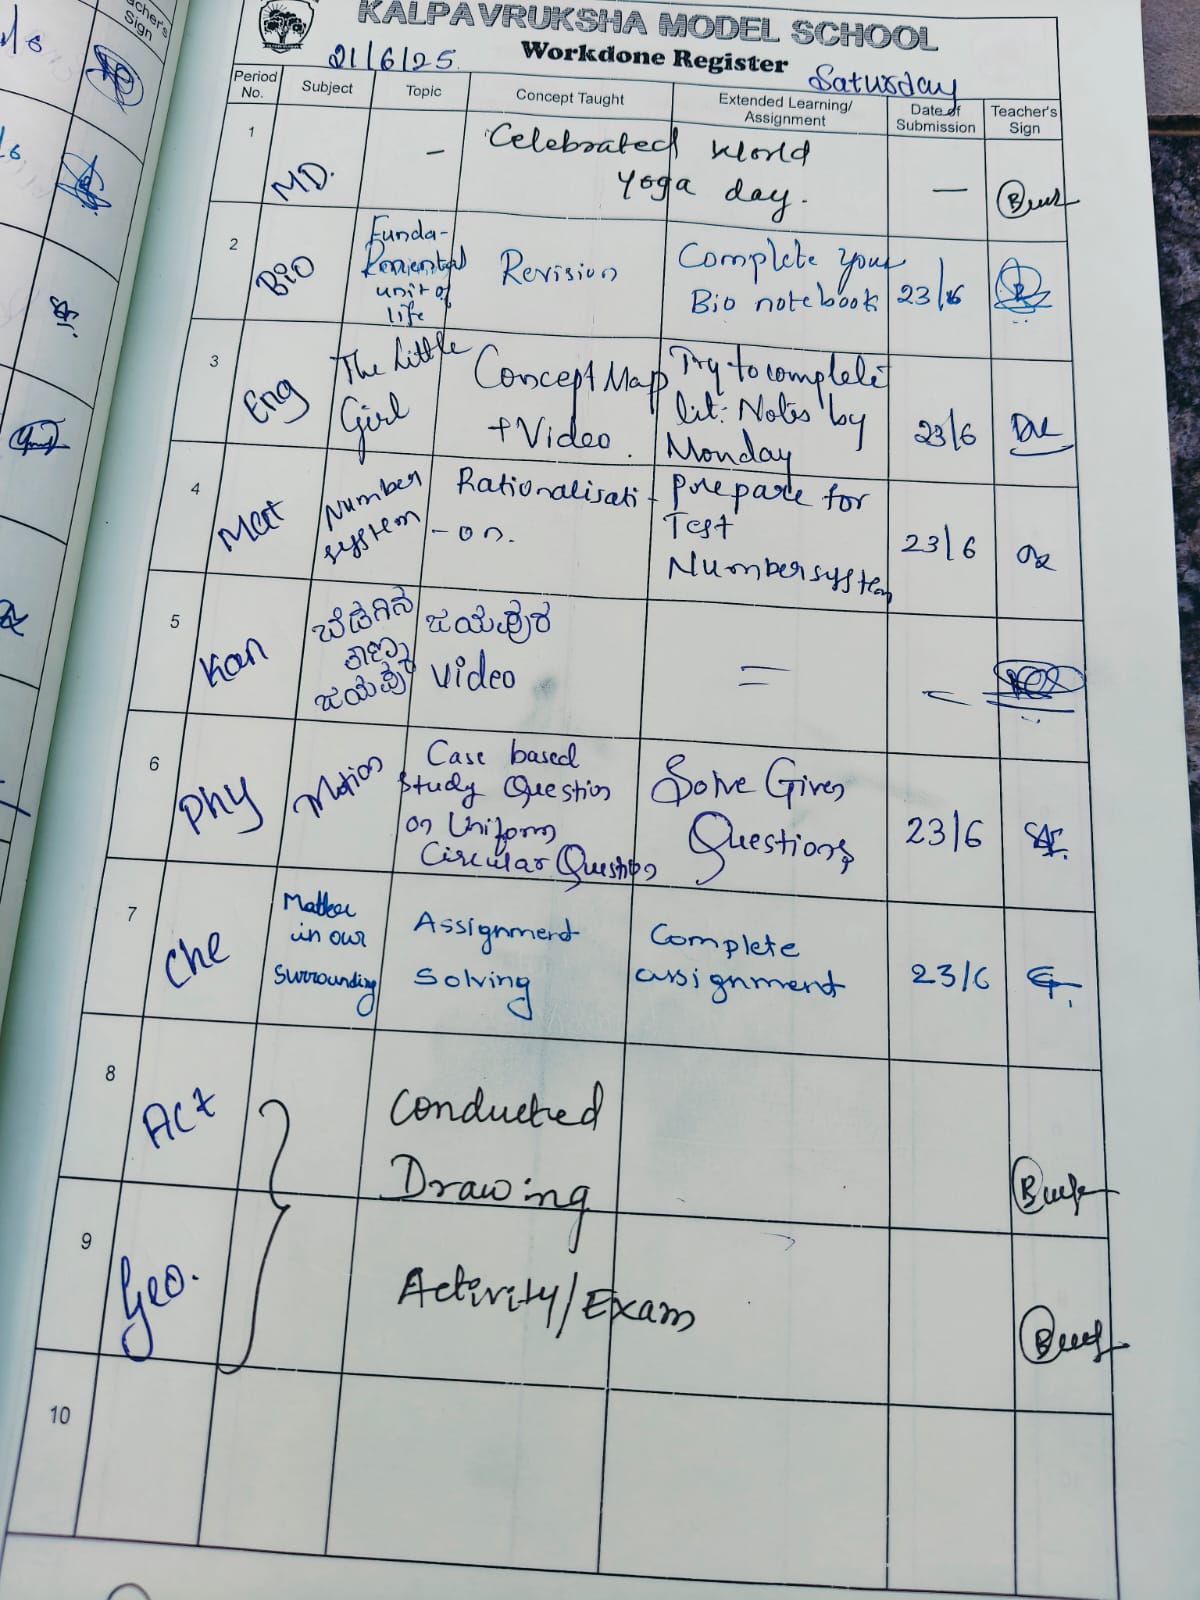 KALPAVRUKSHA MODEL SCHOOL
Workdone Register
21/6/25. Saturday
Period No. Subject Topic Concept Taught Extended Learning/ Assignment Date of Submission Teacher's Sign
1 MD. – Celebrated World
Yoga day. —
2 Bio Funda-
unit of
life
Revision
Complete your
Bio notebook 23/6
3 Eng The Little
Girl
Concept Map
+ Video.
Try to complete
lit: Notes by
Monday
23/6
4 Mat Number
system
Rationalisati-
-on.
Prepare for
Test
Number system
23/6
5 Kan ಬೆಡಗಿನ
ತಾಣ
ಜಯಪುರ
ಜಯಪುರ
Video
=
6 Phy Motion
Case based
Study Question
on Uniform
Circular Question
Solve Given
Questions
23/6
7 Che Matter
in our
surrounding
Assignment
Solving
Complete
assignment
23/6
8 Act
Conducted
Drawing
9 Geo.
Activity/Exam
10